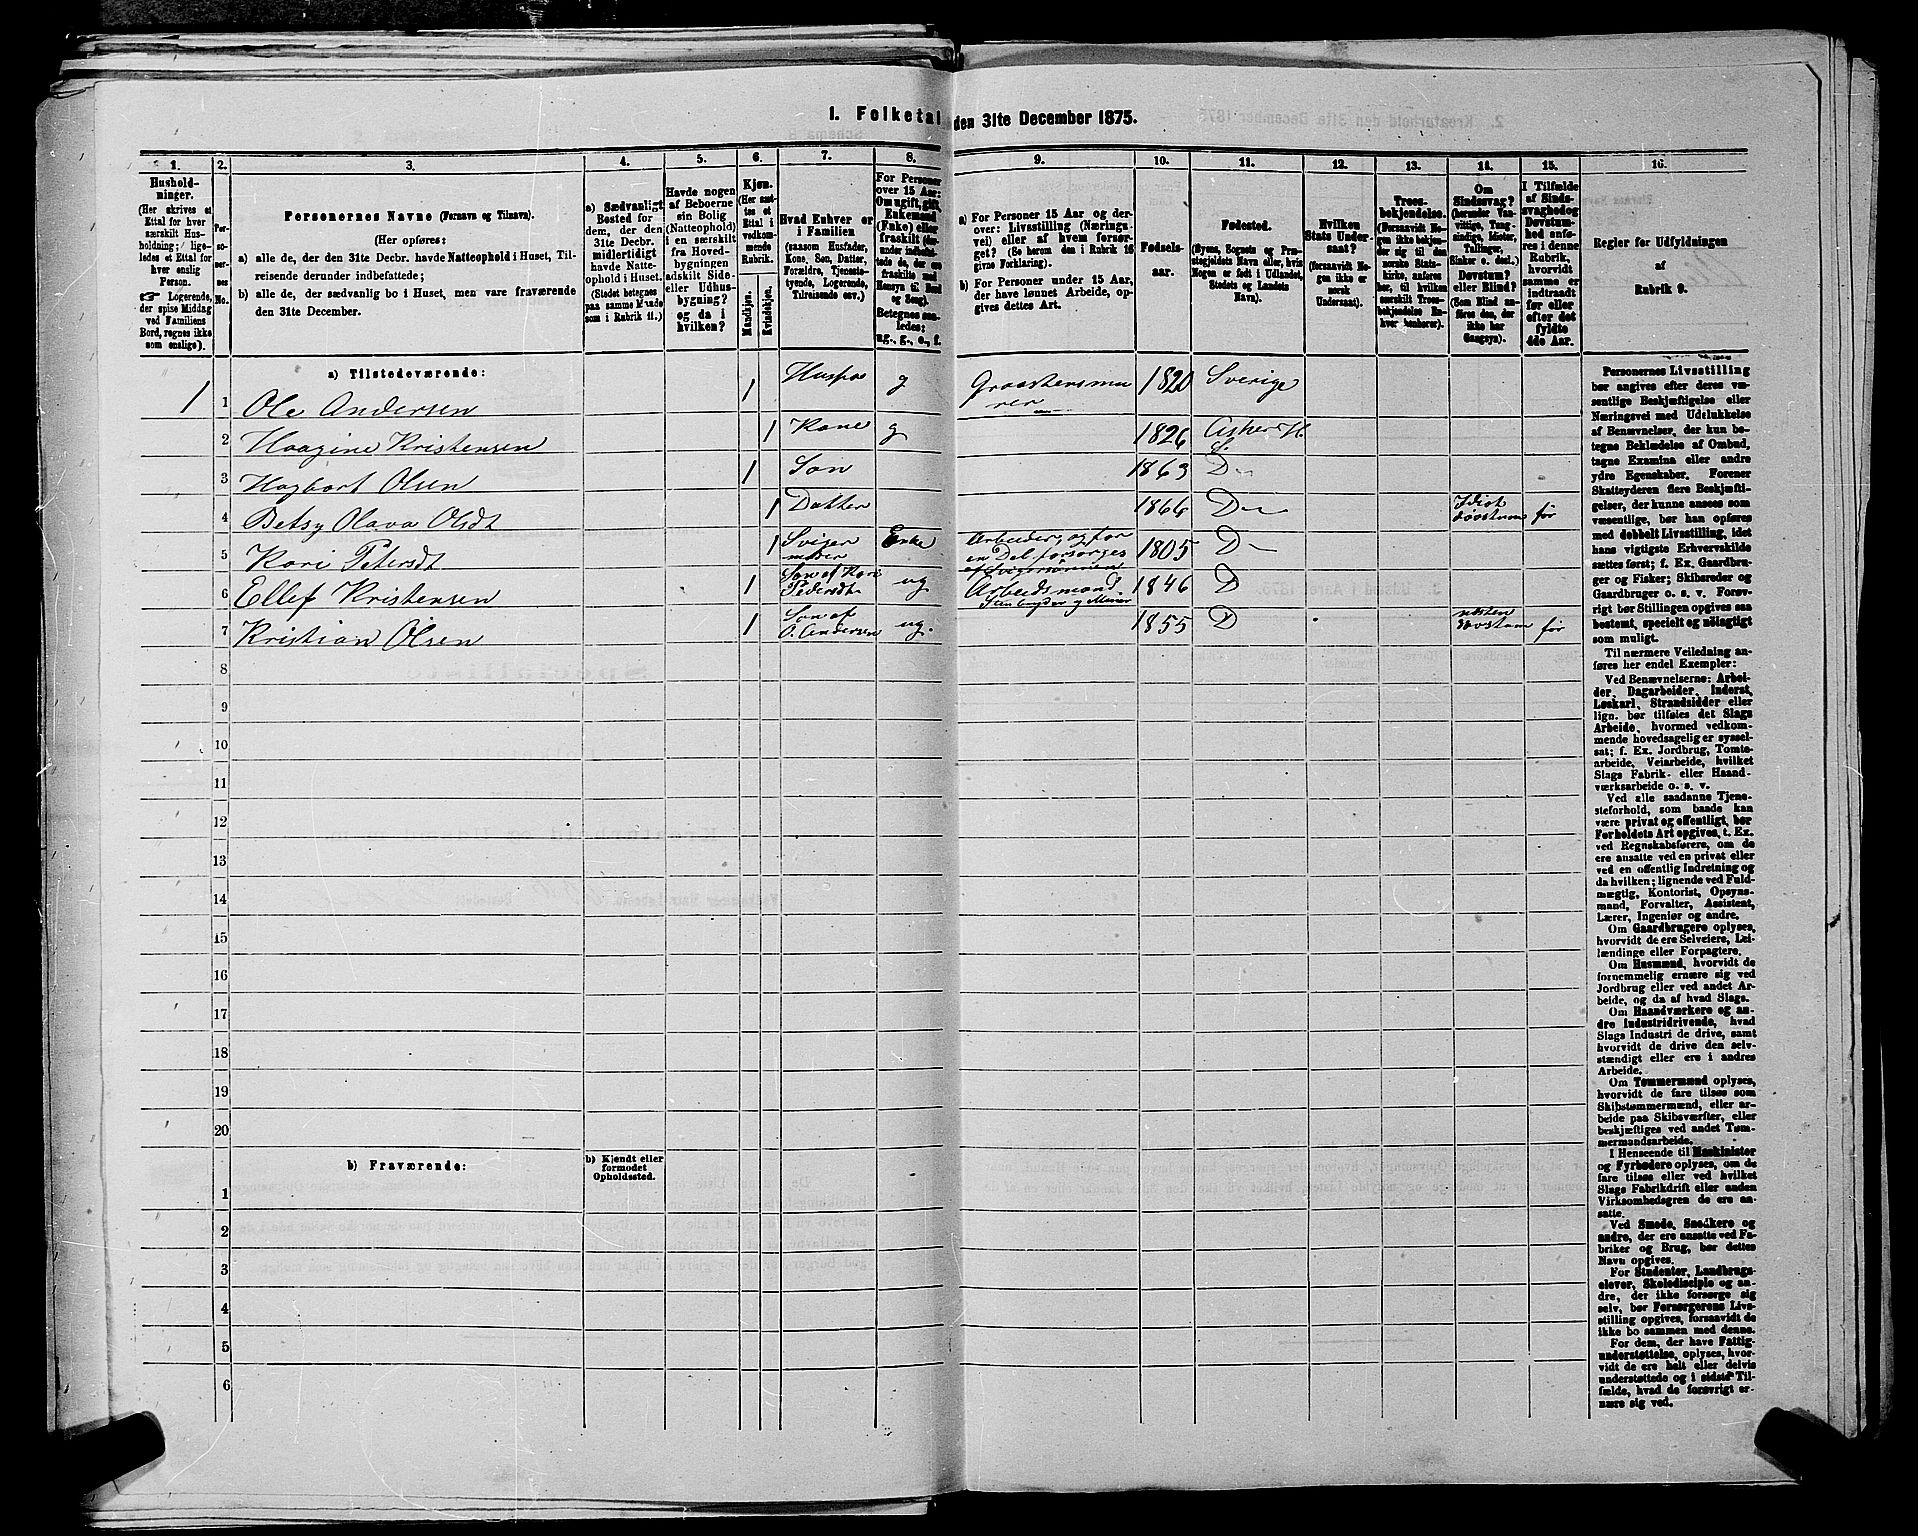 1. Folketal den 31te December 1875.
1. 2. 3. 4. 5. 6. 7. 8. 9. 10. 11. 12. 13. 14. 15. 16.
Husholdninger.
(Her skrives et
Ettal for hver
særskilt Husholdning;
ligeledes et Ettal for
hver enslig
Person.
☞ Logerende,
der spise Middag
ved Familiens
Bord, regnes ikke
som enslige).
Personernes No.
Personernes Navne (Fornavn og Tilnavn).
(Her opføres:
a) alle de, der den 31te Decbr. havde Natteophold i Huset, Tilreisende derunder indbefattede;
b) alle de, der sædvanlig bo i Huset, men vare fraværende
den 31te December.
a) Sædvanligt
Bosted for
dem, der den
31te Decbr.
midlertidigt
havde Natteophold i Huset.
(Stedet betegnes
paa samme Maade
som i Rubrik 11.)
Havde nogen
af Beboerne
sin Bolig
(Natteophold)
i en særskilt
fra Hovedbygningen
adskilt Side-
eller Udhusbygning?
og da i
hvilken?
Kjøn.
(Her sættes et
Ettal i
vedkommende
Rubrik.
Mandkjøn.
Kvindekjøn.
Hvad Enhver er
i Familien
(saasom Husfader,
Kone, Søn, Datter,
Forældre, Tjenestetyende, Logerende,
Tilreisende osv.)
For Personer
over 15 Aar:
Om ugift, gift,
Enkemand
(Enke) eller
fraskilt
Betegnes saaledes:
ug., g., e., f.
a) For Personer 15 Aar og derover: Livsstilling (Næringsvei) eller af hvem forsørget.
(Se herom den i Rubrik 16
givne Forklaring).
b) For Personer under 15 Aar,
der have lønnet Arbeide, opgives dettes Art.
Fødselsaar.
Fødested.
(Byens, Sognets og Præstegjeldets Navn eller, hvis
Nogen er født i Udlandet,
Stedets og Landets
Navn).
Hvilken
Stats Undersaat?
(forsaavidt Nogen ikke er
norsk
Undersaat).
Troesbekjendelse.
(Forsaavidt Nogen ikke bekjender sig til den
norske Statskirke, anføres
her, til hvilken
særskilt Troesbekjendelse Enhver henhører).
Om
Sindssvag?
Døvstum?
eller Blind?
(Som Blind anføres den, der
ikke har
Gangsyn).
I Tilfælde
af Sindssvaghed og
Døvstumhed anføres i denne
Rubrik,
hvorvidt
samme er
indtraadt
før eller
efter det
fyldte
4de Aar.
Regler for Udfyldningen
af
Rubrik 9.
a) Tilstedeværende:
1 1 Ole Andersen 1 Huspas g Graastensmurer 1820 Sverige
2 Haagine Kristensen 1 Kone g 1826 Asker H. S.
3 Hagbart Olsen 1 Søn 1863 D
4 Betsy Olava Olsdt 1 Datter 1866 D Idiot døvstum før
5 Kari Petersdt 1 Svigermoder Enke Arbeider, og for en Del forsørges af Svigersønnen 1805 D
6 Ellef Kristensen 1 Søn af Kari Pedersdt ug Arbeidsmand Stenbryder og Minør 1846 D
7 Kristian Olsen 1 Søn af O. Andersen ug. 1855 D næsten døvstum før
8
9
10
11
12
13
14
15
16
17
18
19
20
b) Fraværende:
b) Kjendt eller
formodet
Opholdssted.
1
2
3
4
5
6
Personernes Livsstilling
bør angives efter deres væsentlige Beskjæftigelse eller
Næringsvei med Udelukkelse
af Benævnelser, der kun betegne Beklædelse af Ombud,
tagne Examina eller andre
ydre Egenskaber. Forener
Skatteyderen flere Beskjæftigelser, der kunne ansees som
væsentlige, bør han opføres
med dobbelt Livsstilling, idet
hans vigtigste Erhvervskilde
sættes først; f. Ex. Gaardbruger og Fisker; Skibsreder og
Gaardbruger o. s. v. Forøvrigt bør Stillingen opgives saa
bestemt, specielt og nøiagtigt
som muligt.
Til nærmere Veiledning anføres her endel Exempler:
Ved Benævnelserne: Arbeider, Dagarbeider, Inderst,
Løskarl, Strandsidder eller
lign. bør tilføies det Slags
Arbeide, hvormed vedkommende hovedsagelig er sysselsat; f. Ex. Jordbrug, Tomtearbeide, Veiarbeide, hvilket
Slags Fabrik- eller Haandværksarbeide o. s. v.
Ved alle saadanne Tjenesteforhold, som baade kan
være privat og offentligt, bør
Forholdets Art opgives, t. Ex.
ved Regnskabsførere, om de
ere ansatte ved en privat eller
ved en offentlig Indretning og
da hvilken; lignende ved Fuldmægtig, Kontorist, Opsynsmand, Forvalter, Assistent,
Lærer, Ingeniør og andre.
Om Gaardbrugere oplyses,
hvorvidt de ere Selveiere, Leilændinge eller Forpagtere.
Om Husmænd, hvorvidt de
fornemmelig ernære sig ved
Jordbrug eller ved andet Arbeide, og da af hvad Slags.
Om Haandværkere og andre Industridrivende, hvad
Slags Industri de drive, samt
hvorvidt de drive den selvstændigt eller ere i andres
Arbeide.
Om Tømmermænd oplyses,
hvorvidt de fare tilsøs som
Skibstømmermænd, eller arbeide paa Skibsværfter, eller
beskjæftiges ved andet Tømmermandsarbeide.
I Henseende til Maskinister
og Fyrbødere oplyses, om de
fare tilsøs eller ved hvilket
Slags Fabrikdrift eller anden
Virksomhedsgren de ere ansatte.
Ved Smede, Snedkere og
andre, der ere ansatte ved Fabriker og Brug, bør dettes
Navn opgives.
For Studenter, Landbrugselever, Skoledisciple og andre, der ikke forsørge sig
selv, bør Forsørgerens Livsstilling opgives, forsaavidt de
ikke bo sammen med denne.
For dem, der have Fattigunderstøttelse, oplyses, hvorvidt de ere helt eller delvis
understøttede og i sidste Tilfælde, hvad de forøvrigt ernære sig ved.